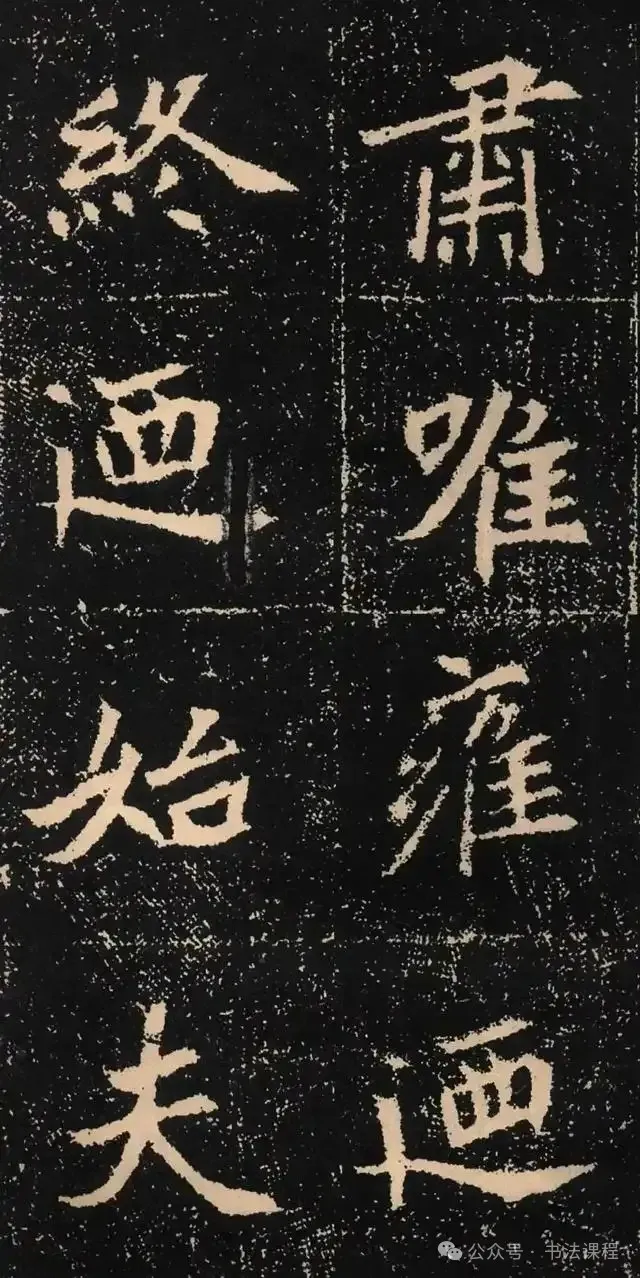 肅唯雍迺
終迺始夫
公众号 · 书法课程